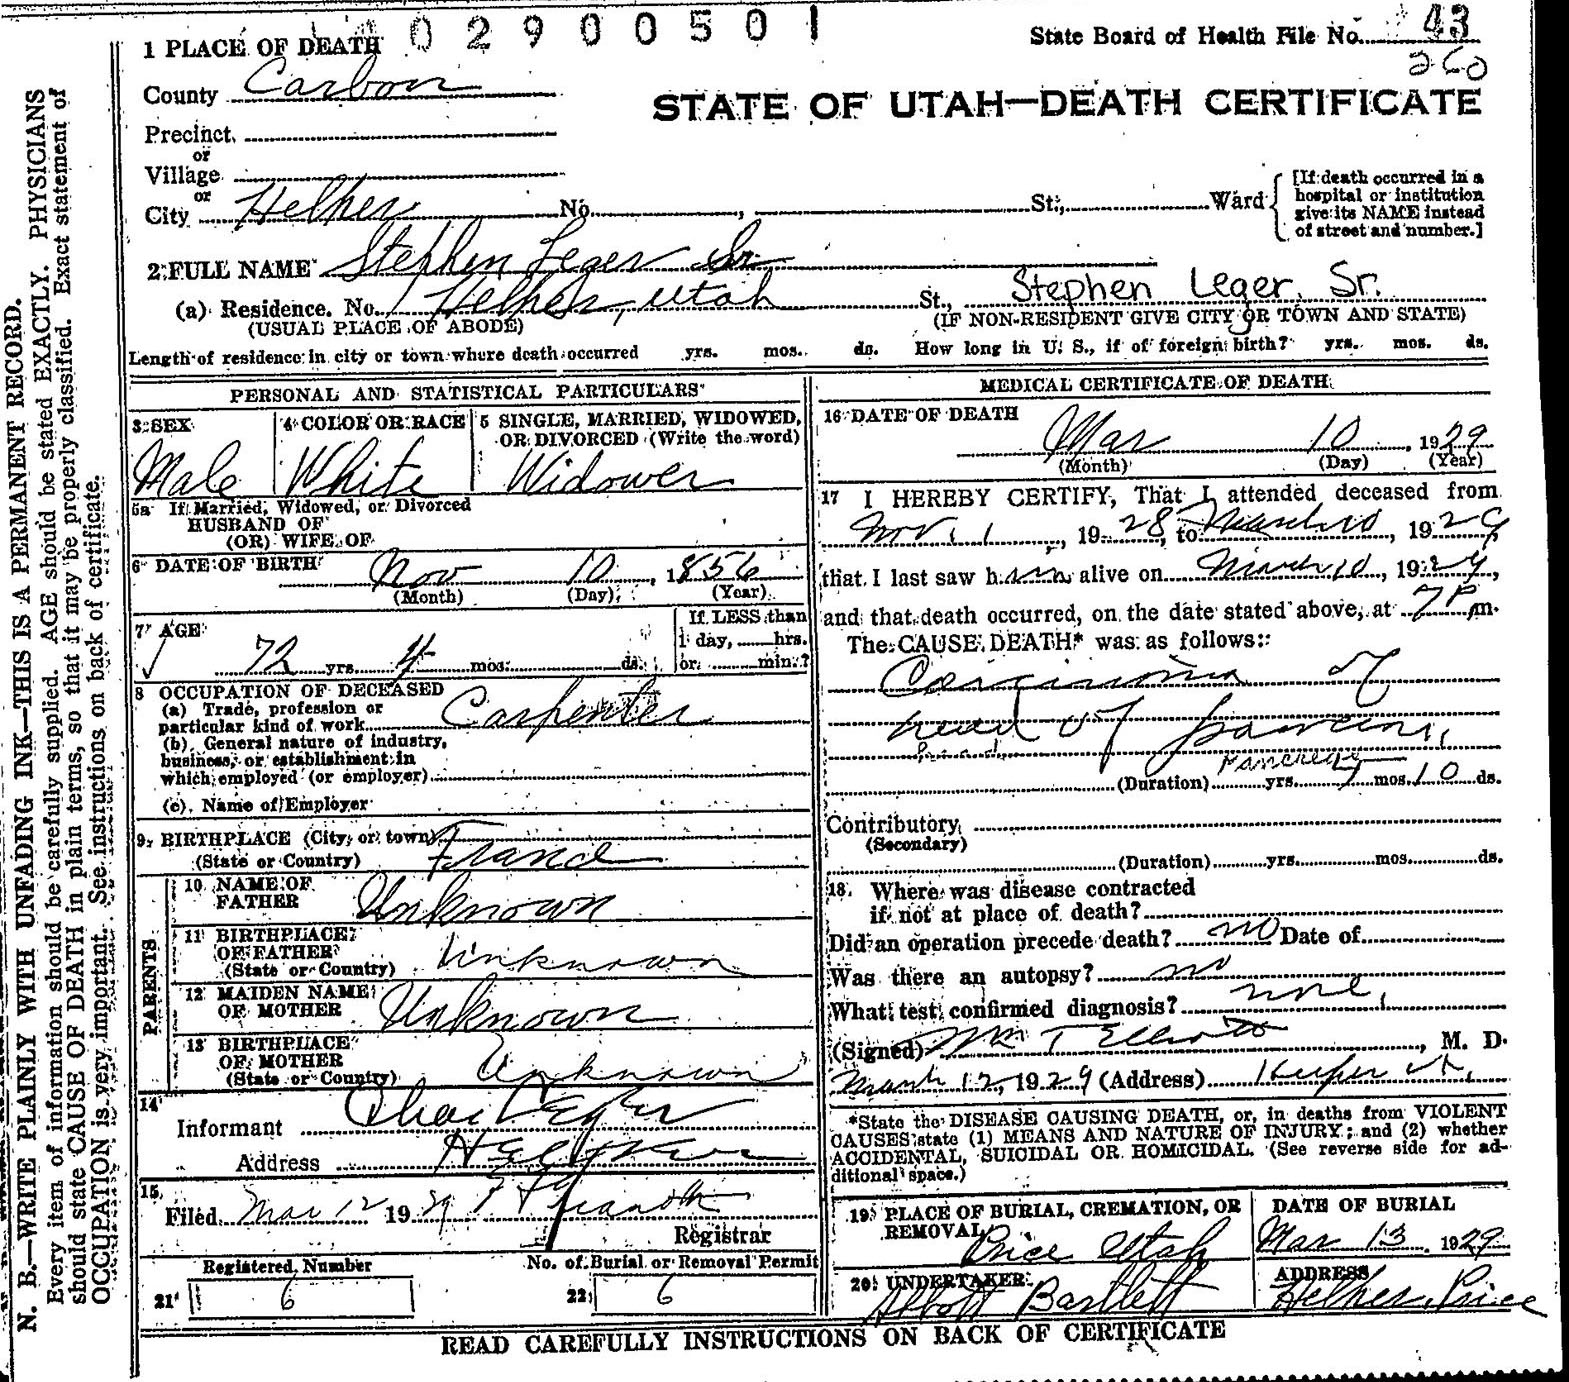 02900501
State Board of Health File No. 43
260
1 PLACE OF DEATH
County Carbon
STATE OF UTAH—DEATH CERTIFICATE
Precinct
or
Village
or
City Helper No. , St., Ward
[If death occurred in a hospital or institution give its NAME instead of street and number.]
2 FULL NAME Stephen Leger Sr
(a) Residence. No. Helper, Utah St., Stephen Leger, Sr.
(USUAL PLACE OF ABODE) (IF NON-RESIDENT GIVE CITY OR TOWN AND STATE)
Length of residence in city or town where death occurred yrs. mos. ds. How long in U. S., if of foreign birth? yrs. mos. ds.
PERSONAL AND STATISTICAL PARTICULARS
3 SEX
Male
4 COLOR OR RACE
White
5 SINGLE, MARRIED, WIDOWED,
OR DIVORCED (Write the word)
Widower
5a If Married, Widowed, or Divorced
HUSBAND OF
(OR) WIFE OF
6 DATE OF BIRTH Nov 10, 1856
(Month) (Day) (Year)
7 AGE
72 yrs 4 mos. ds.
If LESS than
1 day, hrs.
or min.?
8 OCCUPATION OF DECEASED
(a) Trade, profession or
particular kind of work Carpenter
(b) General nature of industry,
business, or establishment in
which employed (or employer)
(c) Name of Employer
9 BIRTHPLACE (City or town)
(State or Country) France
PARENTS
10 NAME OF
FATHER Unknown
11 BIRTHPLACE
OF FATHER
(State or Country) Unknown
12 MAIDEN NAME
OF MOTHER Unknown
13 BIRTHPLACE
OF MOTHER
(State or Country) Unknown
14
Informant Chas Leger
Address Helper
15
Filed Mar 12 1929
Registrar
Registered Number
21 6
No. of Burial or Removal Permit
22 6
MEDICAL CERTIFICATE OF DEATH
16 DATE OF DEATH
Mar 10, 1929
(Month) (Day) (Year)
17 I HEREBY CERTIFY, That I attended deceased from
Nov. 1, 1928, to March 10, 1929,
that I last saw him alive on March 10, 1929,
and that death occurred, on the date stated above, at 7 P m.
The CAUSE DEATH* was as follows:
Carcinoma of
head of pancreas,
head pancreas
(Duration) yrs. mos. 10 ds.
Contributory
(Secondary)
(Duration) yrs. mos. ds.
18 Where was disease contracted
if not at place of death?
Did an operation precede death? no Date of
Was there an autopsy? no
What test confirmed diagnosis? none,
(Signed) Wm T Elliott, M. D.
March 12, 1929 (Address) Helper Ut.
*State the DISEASE CAUSING DEATH, or, in deaths from VIOLENT
CAUSES state (1) MEANS AND NATURE OF INJURY; and (2) whether
ACCIDENTAL, SUICIDAL OR HOMICIDAL. (See reverse side for ad-
ditional space.)
19 PLACE OF BURIAL, CREMATION, OR
REMOVAL
Price Utah
DATE OF BURIAL
Mar 13 1929
20 UNDERTAKER
Abbott Bartlett
ADDRESS
Helper, Price
READ CAREFULLY INSTRUCTIONS ON BACK OF CERTIFICATE
N. B.—WRITE PLAINLY WITH UNFADING INK—THIS IS A PERMANENT RECORD.
Every item of information should be carefully supplied. AGE should be stated EXACTLY. PHYSICIANS
should state CAUSE OF DEATH in plain terms, so that it may be properly classified. Exact statement of
OCCUPATION is very important. See instructions on back of certificate.